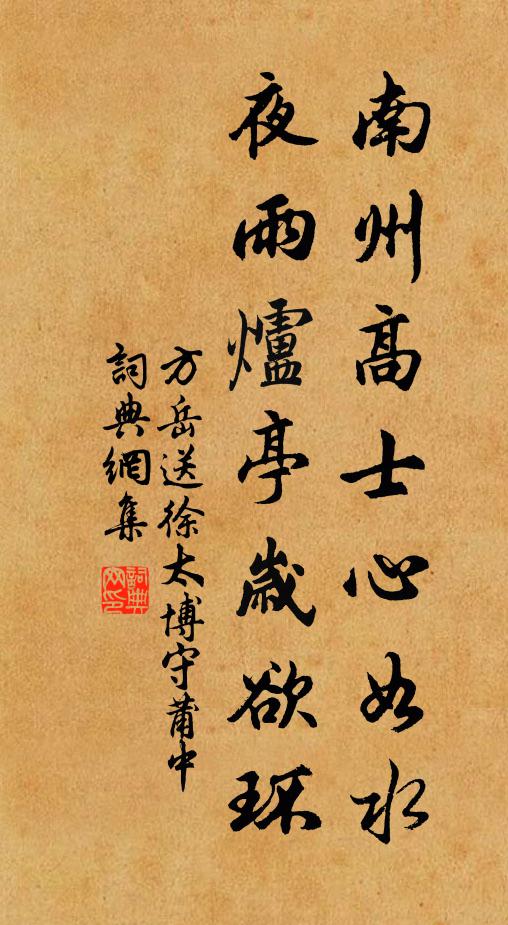 南州高士心如水
夜雨爐亭歲欲環
方岳送徐太博守莆中
詞典網集
詞典
网印